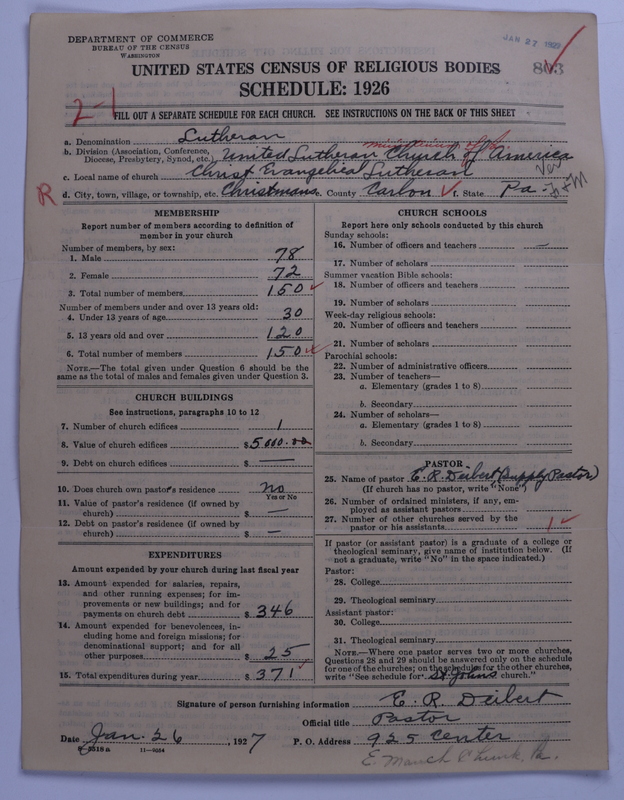 DEPARTMENT OF COMMERCE
BUREAU OF THE CENSUS
WASHINGTON
JAN 27 1927
803
UNITED STATES CENSUS OF RELIGIOUS BODIES
SCHEDULE: 1926
2-1
FILL OUT A SEPARATE SCHEDULE FOR EACH CHURCH. SEE INSTRUCTIONS ON THE BACK OF THIS SHEET
a. Denomination Lutheran
b. Division (Association, Conference,
Diocese, Presbytery, Synod, etc.) United Lutheran Church of America
c. Local name of church Christ Evangelical Lutheran
R
d. City, town, village, or township, etc. Christmans e. County Carbon f. State Pa.
MEMBERSHIP
Report number of members according to definition of
member in your church
Number of members, by sex:
1. Male 78
2. Female 72
3. Total number of members 150
Number of members under and over 13 years old:
4. Under 13 years of age 30
5. 13 years old and over 120
6. Total number of members 150
NOTE.—The total given under Question 6 should be the
same as the total of males and females given under Question 3.
CHURCH BUILDINGS
See instructions, paragraphs 10 to 12
7. Number of church edifices 1
8. Value of church edifices $5000.00
9. Debt on church edifices $ —
10. Does church own pastor's residence No
Yes or No
11. Value of pastor's residence (if owned by
church) $ —
12. Debt on pastor's residence (if owned by
church) $ —
EXPENDITURES
Amount expended by your church during last fiscal year
13. Amount expended for salaries, repairs,
and other running expenses; for im-
provements or new buildings; and for
payments on church debt $ 346
14. Amount expended for benevolences, in-
cluding home and foreign missions; for
denominational support; and for all
other purposes $ 25
15. Total expenditures during year $ 371
CHURCH SCHOOLS
Report here only schools conducted by this church
Sunday schools:
16. Number of officers and teachers —
17. Number of scholars
Summer vacation Bible schools:
18. Number of officers and teachers
19. Number of scholars
Week-day religious schools:
20. Number of officers and teachers
21. Number of scholars
Parochial schools:
22. Number of administrative officers
23. Number of teachers—
a. Elementary (grades 1 to 8)
b. Secondary
24. Number of scholars—
a. Elementary (grades 1 to 8)
b. Secondary
PASTOR
25. Name of pastor E. R. Deibert (Supply Pastor)
(If church has no pastor, write "None")
26. Number of ordained ministers, if any, em-
ployed as assistant pastors
27. Number of other churches served by the
pastor or his assistants 1
If pastor (or assistant pastor) is a graduate of a college or
theological seminary, give name of institution below. (If
not a graduate, write "No" in the space indicated.)
Pastor:
28. College
29. Theological seminary
Assistant pastor:
30. College
31. Theological seminary
NOTE.—Where one pastor serves two or more churches,
Questions 28 and 29 should be answered only on the schedule
for one of the churches; on the schedules for the other churches,
write "See schedule for St. Johns church."
Signature of person furnishing information E. R. Deibert
Official title Pastor
Date Jan. 26, 1927 P. O. Address 925 Center
8-5518a 11-9054
E. Mauch Chunk, Pa.